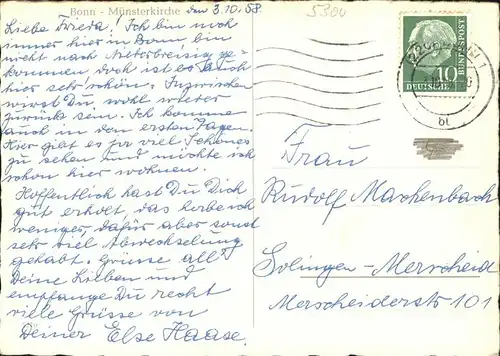 Bonn - Münsterkirche
den 3.10.58
5300
Liebe Frieda! Ich bin noch
immer hier in Bonn bin
nicht nach Niederbreisig ge-
kommen, doch ist es auch
hier sehr schön. Inzwischen
wirst Du wohl wieder
zurück sein. Ich komme
auch in den ersten Tagen.
Hier gibt es ja viel Schönes
zu sehen und möchte ich
schon hier wohnen.
Hoffentlich hast Du Dich
gut erholt, das habe ich
weniger, dafür aber sonst
sehr viel Abwechselung
gehabt. Grüsse all
Deine Lieben und
empfange Du recht
viele Grüsse von
Deiner Else Haase.
10
DEUTSCHE
BUNDESPOST
bt
Frau
Rudolf Machenbach
Solingen-Merscheid
Merscheiderstr 101